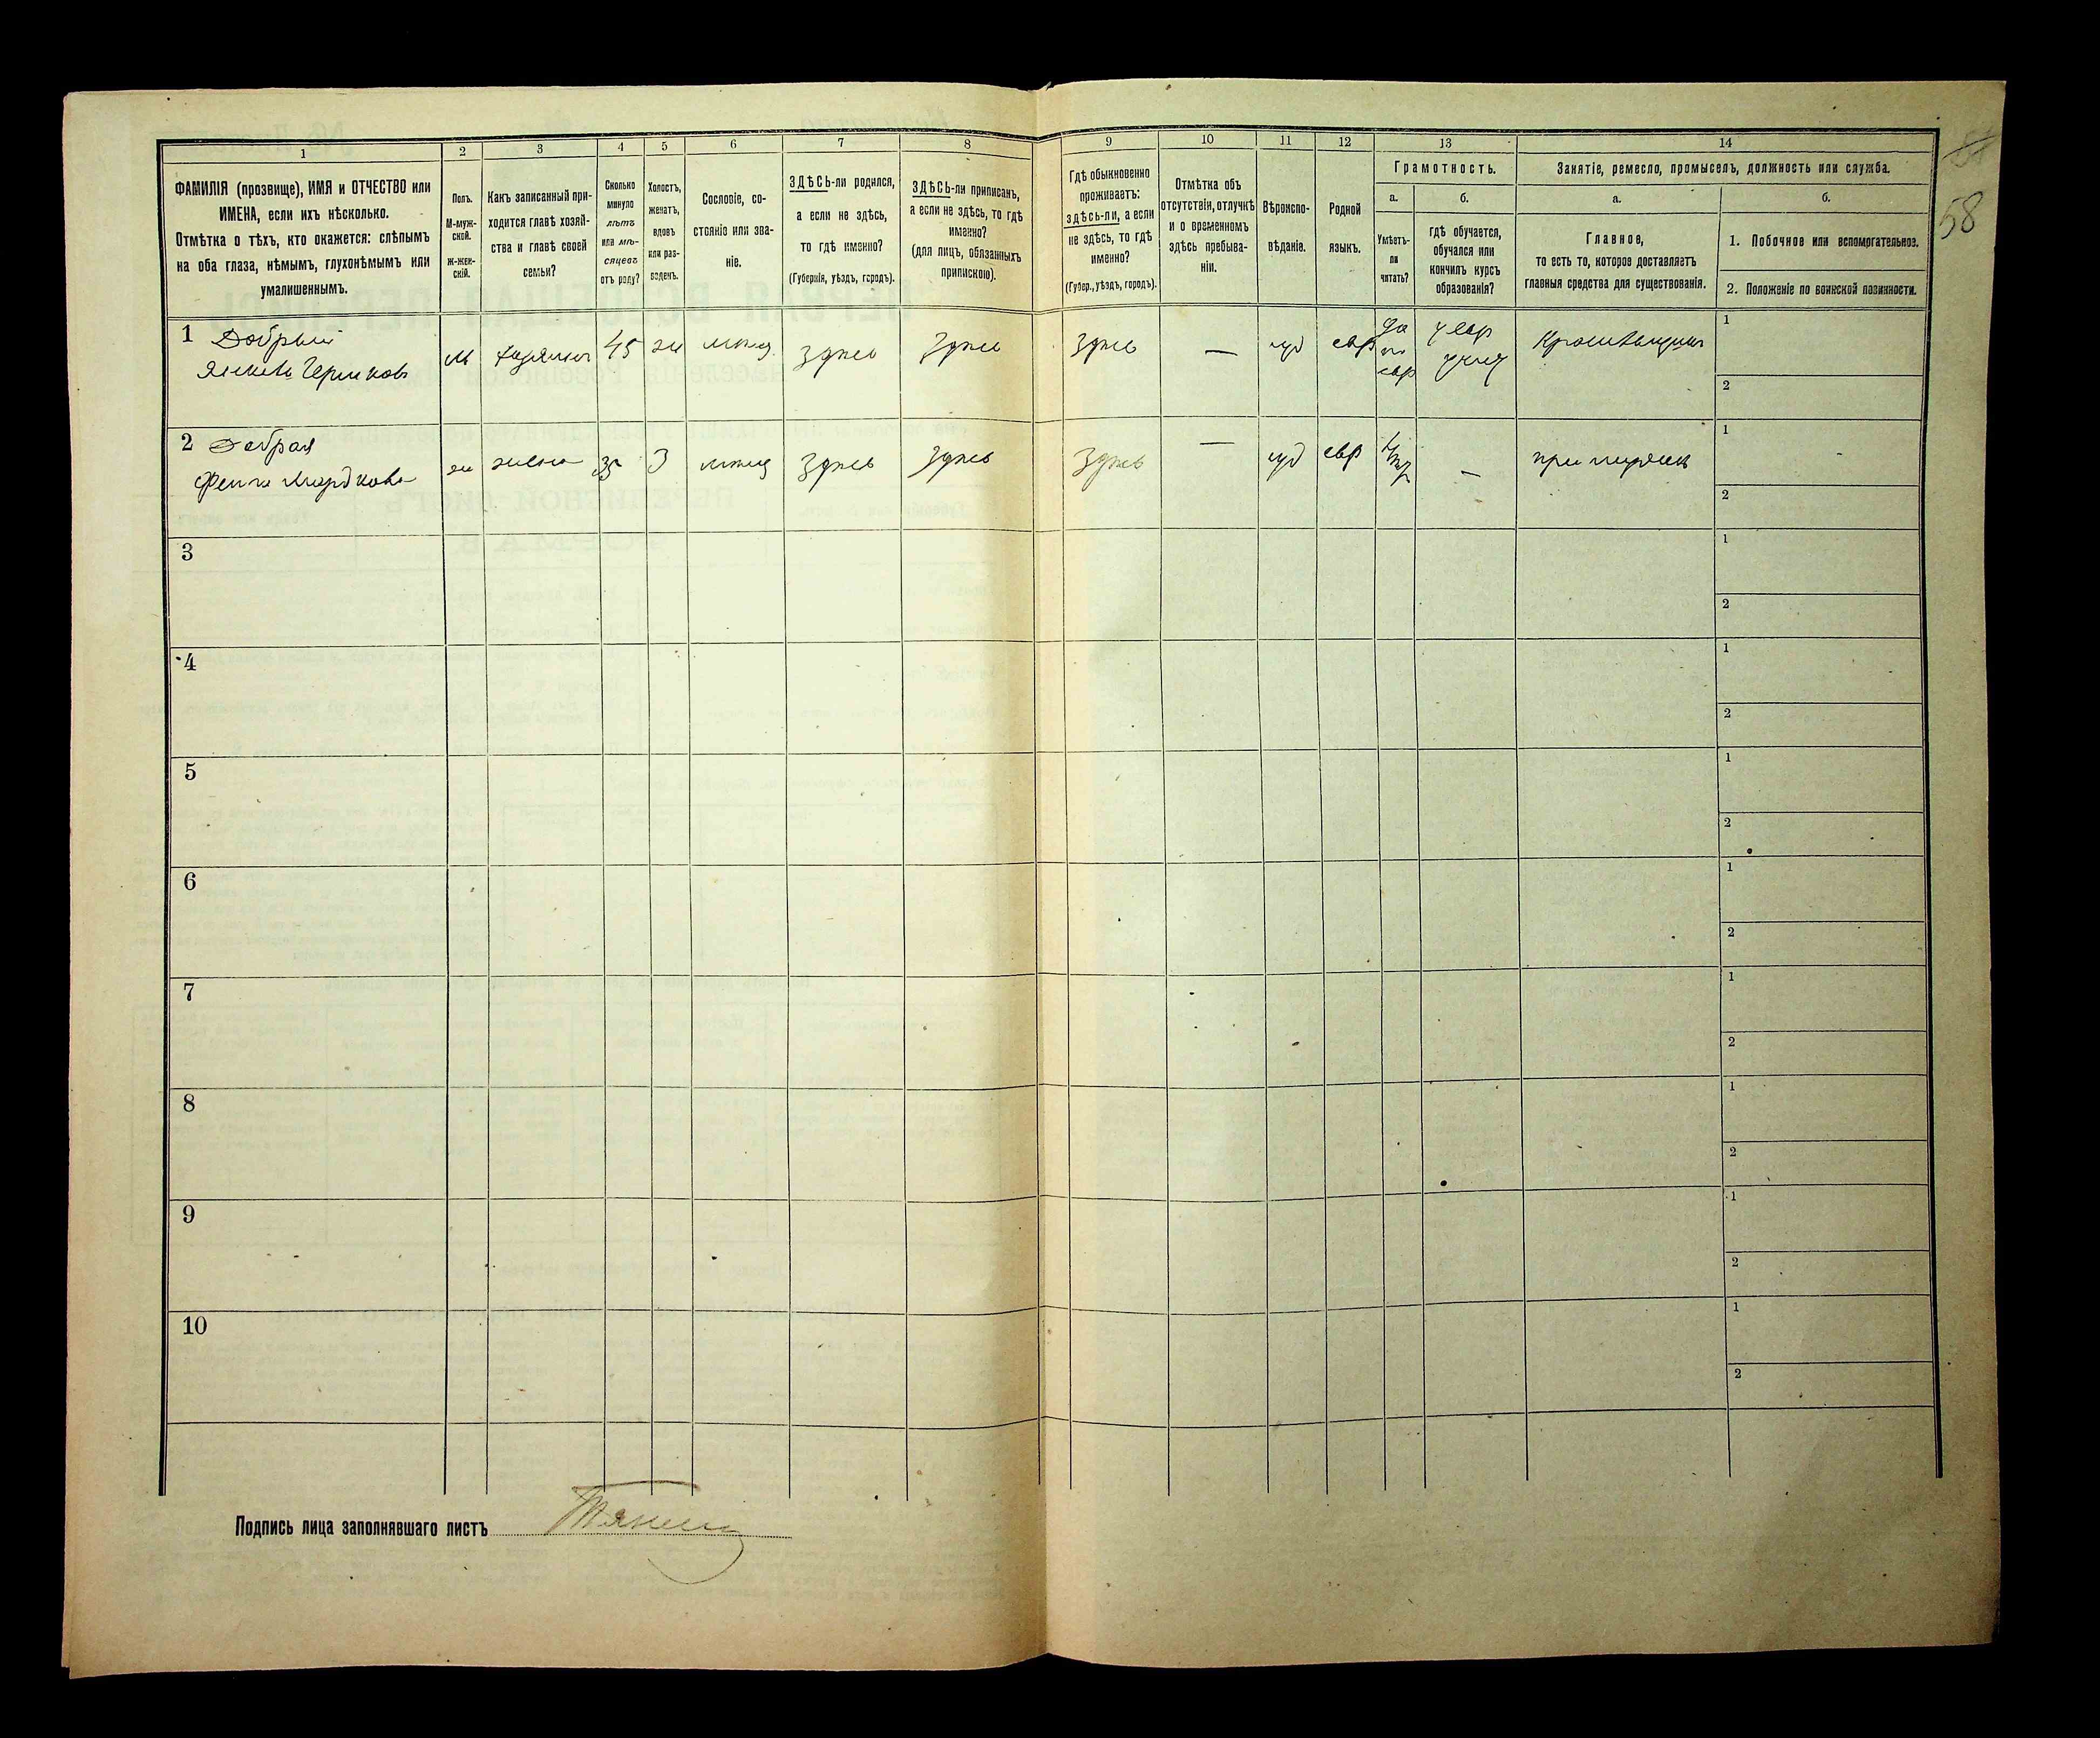 1
2
3
4
5
6
7
8
9
10
11
12
13
14
58
ФАМИЛІЯ (прозвище), ИМЯ и ОТЧЕСТВО или
ИМЕНА, если ихъ нѣсколько.
Отмѣтка о тѣхъ, кто окажется: слѣпымъ
на оба глаза, нѣмымъ, глухонѣмымъ или
умалишеннымъ.
Полъ.
М-муж-
ской.
Ж-жен-
скій.
Какъ записанный при-
ходится главѣ хозяй-
ства и главѣ своей
семьи?
Сколько
минуло
лѣтъ
или мѣ-
сяцевъ
отъ роду?
Холостъ,
женатъ,
вдовъ
или раз-
веденъ.
Сословіе, со-
стояніе или зва-
ніе.
ЗДѢСЬ-ли родился,
а если не здѣсь,
то гдѣ именно?
(Губернія, уѣздъ, городъ).
ЗДѢСЬ-ли приписанъ,
а если не здѣсь, то гдѣ
именно?
(для лицъ, обязанныхъ
припискою).
Гдѣ обыкновенно
проживаетъ:
здѣсь-ли, а если
не здѣсь, то гдѣ
именно?
(Губер., уѣздъ, городъ).
Отмѣтка объ
отсутствіи, отлучкѣ
и о временномъ
здѣсь пребыва-
ніи.
Вѣроиспо-
вѣданіе.
Родной
языкъ.
Грамотность.
а.
Умѣетъ-
ли
читать?
б.
гдѣ обучается,
обучался или
кончилъ курсъ
образованія?
Занятіе, ремесло, промыселъ, должность или служба.
а.
Главное,
то есть то, которое доставляетъ
главныя средства для существованія.
б.
1. Побочное или вспомогательное.
2. Положеніе по воинской повинности.
1 Добрый
м
хозяинъ
45
ж
здѣсь
здѣсь
здѣсь
—
іуд
евр
да
по
евр
1
2
2 Добрая
ж
жена
35
З
здѣсь
здѣсь
здѣсь
—
іуд
евр
—
при мужѣ
1
2
3
1
2
4
1
2
5
1
2
6
1
2
7
1
2
8
1
2
9
1
2
10
1
2
Подпись лица заполнявшаго листъ